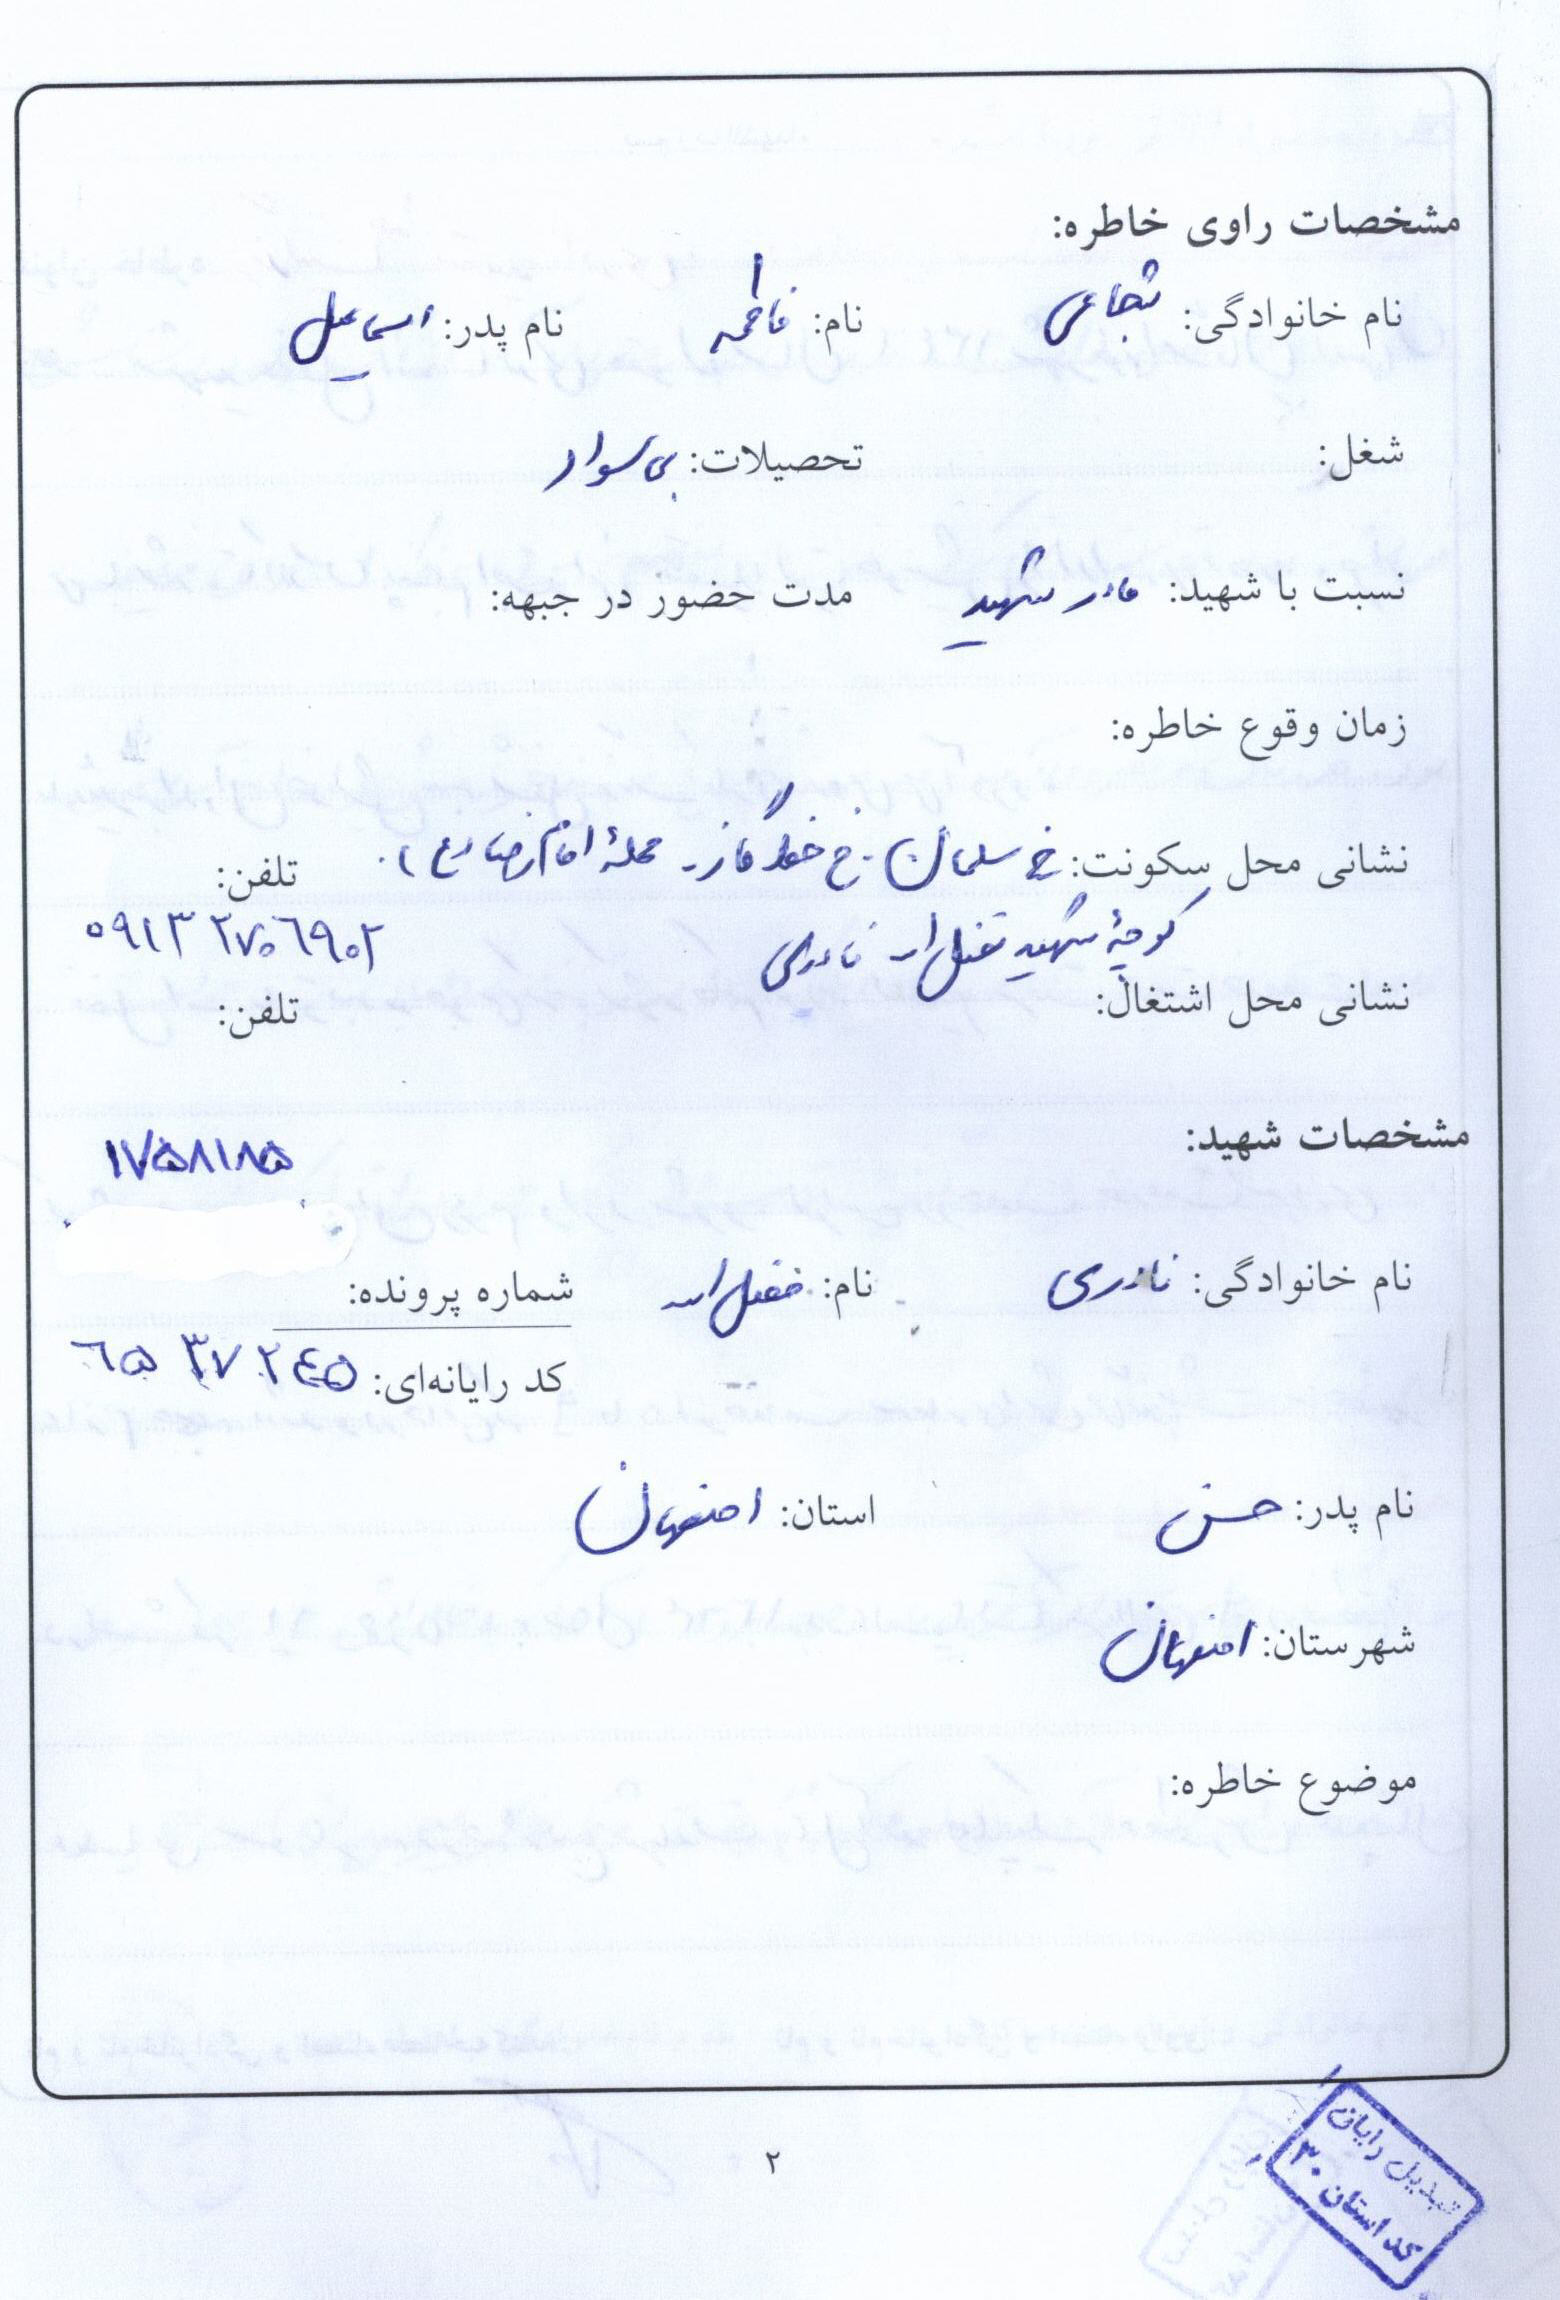 مشخصات راوی خاطره:
نام خانوادگی: شجاعی نام: فاطمه نام پدر: اسماعیل
شغل: تحصیلات: بی سواد
نسبت با شهید: مادر شهید مدت حضور در جبهه:
زمان وقوع خاطره:
نشانی محل سکونت: خ سلمان - خ خط گاز - محلهٔ امام رضا (ع). تلفن:
کوچهٔ شهید فضل اله نادری ۰۹۱۳ ۲۷۰۶۹۰۲
نشانی محل اشتغال: تلفن:
مشخصات شهید:
۱۷۵۸۱۸۵
نام خانوادگی: نادری نام: فضل اله شماره پرونده:
کد رایانه‌ای: ۶۵ ۳۷ ۲۴۵
نام پدر: حسن استان: اصفهان
شهرستان: اصفهان
موضوع خاطره:
۲
تبدیل رایان
کد استان ۳۰